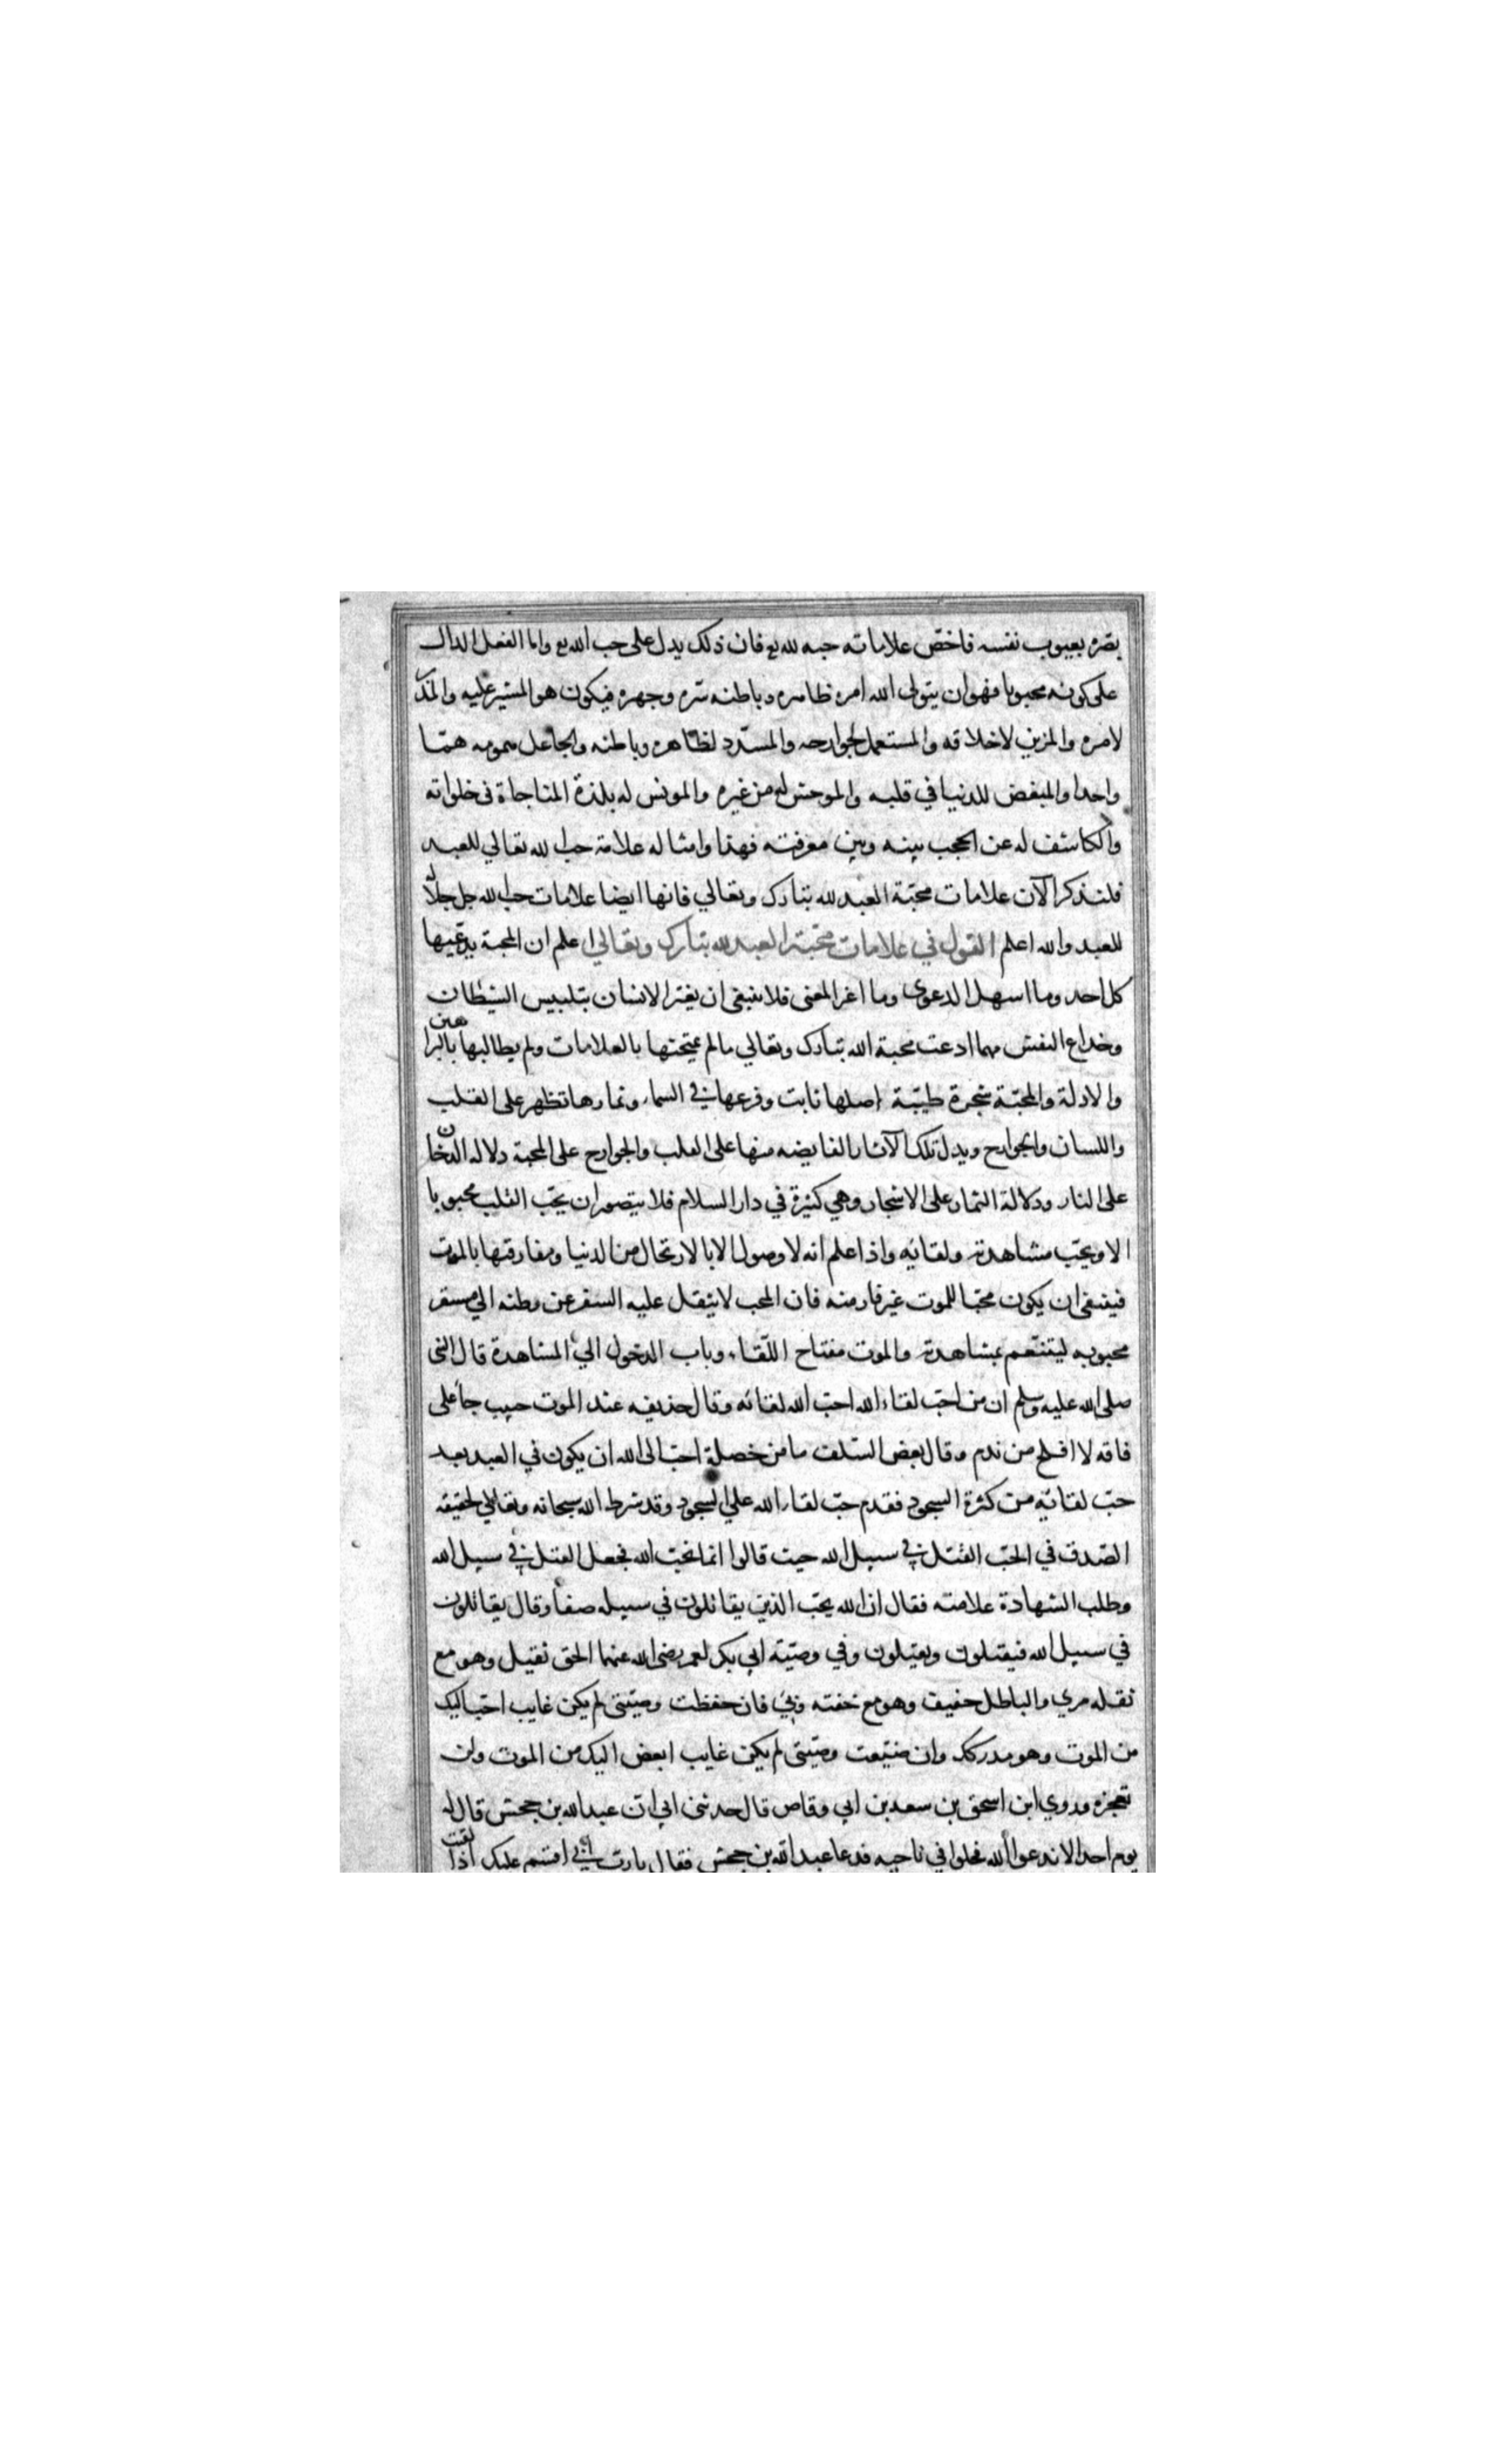 بصره بعيوب نفسه فاخصّ علاماته حبه لله تع فان ذلك يدل على حب الله تع واما الفعل الدال
على كونه محبوبا فهو ان يتولى الله امره ظاهره وباطنه سّره وجهره فيكون هو المشير عليه والمدبر
لامره والمزين لاخلاقه والمستعمل لجوارحه والمسدّد لظاهره وباطنه والجاعل همومه همّا
واحدا والمبغض للدنيا في قلبه والموحش له من غيره والمونس له بلذة المناجاة في خلواته
والكاشف له عن الحجب بينه وبين معرفته فهذا وامثاله علامة حب الله تعالي للعبد
فلنذكر الآن علامات محبّة العبد لله تبارك وتعالي فانها ايضا علامات حب الله جل جلاله
للعبد والله اعلم القول في علامات محّبة العبد لله تبارك وتعالي اعلم ان المحبة يدّعيها
كل احد وما اسهل الدعوى وما اعز المعنى فلا ينبغي ان يغتر الانسان بتلبيس الشيطان
وخداع النفس مهما ادعت محبة الله تبارك وتعالي مالم يمتحنها بالعلامات ولم يطالبها بالبراهين
والادلة والمحبّة شجرة طيّبة اصلها ثابت وفرعها في السماء وثمارها تظهر على القلب
واللسان والجوارح ويدل تلك الآثار الفايضه منها على القلب والجوارح على المحبة دلاله الدّخان
على النار ودلالة الثمار على الاشجار وهي كثيرة في دار السلام فلا يتصور ان يحّب القلب محبوبا
الا ويحّب مشاهدته ولقائه واذا علم انه لا وصول الا بالارتحال من الدنيا ومفارقتها بالموت
فينبغي ان يكون محبّا للموت غير فار منه فان المحب لا يثقل عليه السفر عن وطنه الي مستقر
محبوبه ليتنعّم بمشاهدته والموت مفتاح اللّقاء وباب الدخول الي المشاهدة قال النبي
صلى الله عليه وسلم ان من احّب لقاء الله احّب الله لقائه وقال حذيفه عند الموت حبيب جا على
فاقه لا افلح من ندم وقال بعض السّلف ما من خصلة احّب الى الله ان يكون في العبد بعد
حبّ لقائه من كثرة السجود فقدم حبّ لقاء الله علي السجود وقد شرط الله سبحانه وتعالي لحقيقه
الصّدق في الحّب القتل في سبيل الله حيث قالوا انّا نحّب الله فجعل القتل في سبيل الله
وطلب الشهادة علامته فقال ان الله يحّب الذين يقاتلون في سبيله صفاً وقال يقاتلون
في سبيل الله فيقتلون ويقتلون وفي وصيّة ابي بكر لعمر رضي الله عنهما الحق ثقيل وهو مع
ثقله مري والباطل خفيف وهو مع خفته وبيّ فان حفظت وصيّتي لم يكن غايب احّب اليك
من الموت وهو مدركك وان ضيّعت وصيّتي لم يكن غايب ابغض اليك من الموت ولن
تعجزه وروي ابن اسحق بن سعد بن ابي وقاص قال حدثني ابي ان عبد الله بن جحش قال له
يوم احد الا ندعوا الله فخلوا في ناحيه فدعا عبد الله بن جحش فقال يا رّب اني اقسم عليك اذا لقيت